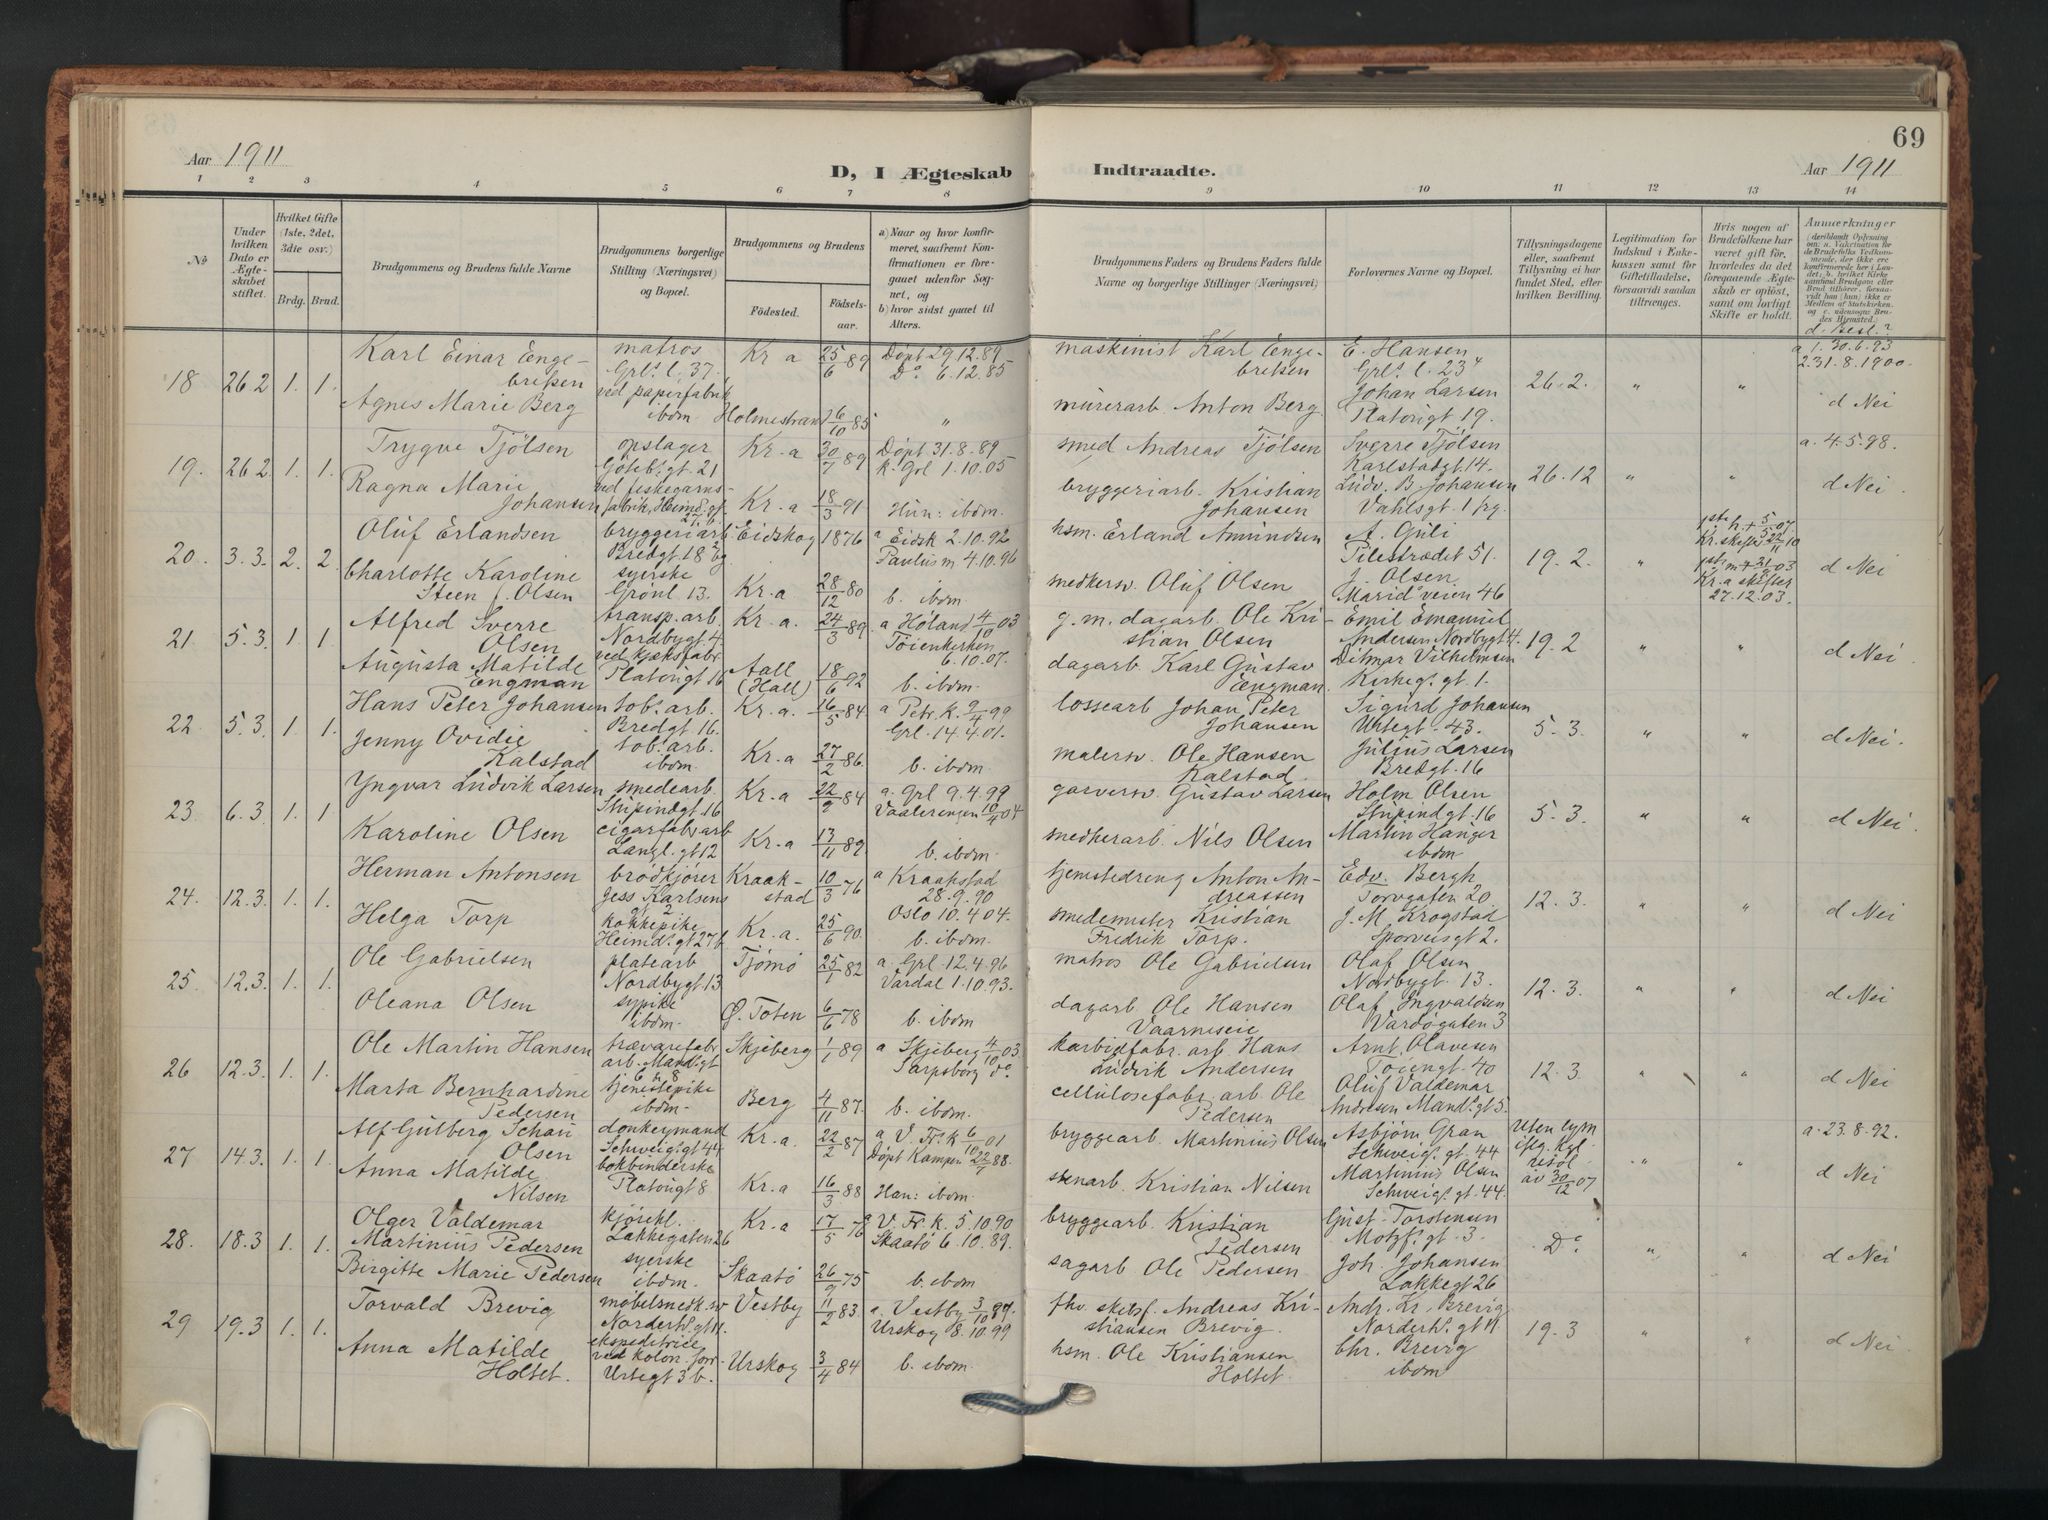 69
Aar 1911
D, I Ægteskab
Indtraadte.
Aar 1911
1 2 3 4 5 6 7 8 9 10 11 12 13 14
No
Under hvilken Dato er Ægteskabet stiftet.
Hvilket Gifte (1ste, 2det, 3die osv.)
Brdg. Brud.
Brudgommens og Brudens fulde Navne
Brudgommens borgerlige Stilling (Næringsvei) og Bopæl.
Brudgommens og Brudens
Fødested.
Fødselsaar.
a) Naar og hvor konfirmeret, saafremt Konfirmationen er foregaaet udenfor Sognet, og
b) hvor sidst gaaet til Alters.
Brudgommens Faders og Brudens Faders fulde Navne og borgerlige Stillinger (Næringsvei)
Forlovernes Navne og Bopæl.
Tillysningsdagene eller, saafremt Tillysning ei har fundet Sted, efter hvilken Bevilling.
Legitimation for Indskud i Enkekassen samt for Giftetilladelse, forsaavidt saadan tiltrænges.
Hvis nogen af Brudefolkene har været gift før, hvorledes da det foregaaende Ægteskab er opløst, samt om lovligt Skifte er holdt.
Anmerkninger
d. Besl.?
18 26 2 1. 1.
Karl Einar Engebretsen
matros Grl. l. 37.
Kr a 25/6 89
Døpt 29.12.89
Do 6.12.85
maskinist Karl Engebretsen
E. Hansen Grl. l. 23
26.2. " "
a 1. 30.6.93
2.31.8.1900.
Agnes Marie Berg
ved papirfabrik ibdm
Holmestrand 6/10 85
"
murerarb. Anton Berg
Johan Larsen Platousgt 19.
d Nei
19. 26 2. 1. 1.
Trygve Tjølsen
opslager Göteb. gt. 21
Kr. a 30/7 89
Døpt 31.8.89
k. Grl 1.10.05
smed Andreas Tjølsen
Sverre Tjølsen Karlstadgt. 14.
26.12 " "
a. 4.5.98.
Ragna Marie Johansen
ved fiskegarnsfabrik, Heimd. gt 27 b.
Kr. a 18/3 91
Hun: ibdm.
bryggeriarb. Kristian Johansen
Ludv. B. Johansen Vahlsgt. 1
d Nei
20. 3.3. 2. 2.
Oluf Erlandsen
bryggeriarb Bredgt. 18
Eidskog 1876
a Eidsk 2.10.92
Paulus m 4.10.96
hsm. Erland Amundsen
A. Guli Pilestrædet 51.
19.2. "
1ste h. + 5/5 07
Kr. skifte 22/11 10
Charlotte Karoline Steen f. Olsen
syerske Grønl 13.
Kr. a 28/12 80
b. ibdm.
snedkersv. Oluf Olsen
J. Olsen Marid'veien 46
1st m + 21/9 03
Kr. a skifter 27.12.03.
d Nei
21. 5.3. 1. 1.
Alfred Sverre Olsen
transp. arb. Nordbygt 4
Kr. a. 24/3 89.
a Høland 4/10 03
Tøienkirken 6.10.07.
g. m. dagarb. Ole Kristian Olsen
Emil Emanuel Andersen Nordbygt 4.
19.2 " "
Augusta Matilde Engman
ved kjæksfabr Platougt 16
Aall (Hall) 18/6 92
b. ibdm.
dagarb. Karl Gustav Engman.
Ditmar Vilhelmsen Kirkeg. gt. 1.
d Nei.
22. 5.3. 1. 1.
Hans Peter Johansen
tob. arb. Bredgt. 16.
Kr. a. 16/5 84
a Petr. k. 9/4 99
Grl. 14.4.01.
lossearb Johan Peter Johansen
Sigurd Johansen Urtegt. 43.
5.3. " "
Jenny Ovidie Kalstad
tob. arb. ibdm.
Kr. a 27/2 86.
b. ibdm.
malersv. Ole Hansen Kalstad.
Julius Larsen Bredgt. 16
d Nei.
23. 6.3. 1. 1
Yngvar Ludvik Larsen
smedearb. Stupindgt. 16
Kr. a 22/9 84
a. Grl 9.4.99
Vaalerengen 10/4 04
garversv. Gustav Larsen
Holm Olsen Stupindgt. 16
5.3. " "
Karoline Olsen
cigarfabrarb Langl. gt 12
Kr. a 13/11 89
b. ibdm.
snedkerarb. Nils Olsen
Martin Hauger ibdm
d Nei.
24. 12.3. 1. 1.
Herman Antonsen
brødkjører Jess Karlsens gt 2
Kraakstad 10/3 76
a Kraakstad 28.9.90
Oslo 10.4 04.
tjenstedreng Anton Andreassen
Edv. Bergh Torvgaten 20
12.3. " "
Helga Torp
kokkepike Heimd. gt 27 b
Kr. a. 25/6 90.
b. ibdm.
smedemester Kristian Fredrik Torp.
J. M. Krogstad Sporveisgt 2.
d Nei
25. 12.3. 1. 1.
Ole Gabrielsen
platearb Nordbygt 13
Tjømø 25/1 82
a. Grl 12.4.96
Vardal 1.10.93.
matros Ole Gabrielsen
Olaf Olsen Nordbygt. 13.
12.3. " "
Oleana Olsen
sypike ibdm.
Ø. Toten 6/6 78
b. ibdm
dagarb Ole Hansen Vaarneseie
Olaf Ingvaldsen Vardøgaten 3
d Nei
26 12.3. 1. 1.
Ole Martin Hansen
trævarefabr. arb. Mand. gt 6
Skjeberg 1/1 89
a Skjeberg 4/10 03
Sarpsborg do
karbidfabr. arb Hans Ludvik Andersen
Arnt Olavesen Tøiengt. 40
12.3. " "
Marta Bernhardine Pedersen
tjenestepike ibdm.
Berg 4/11 87.
b. ibdm.
cellulosefabr. arb. Ole Pedersen
Oluf Valdemar Andresen Mand. gt 5.
d Nei
27 14.3. 1. 1.
Alf Gulberg Schau Olsen
donkeymand Schweig. gt 44
Kr. a. 22/2 87
a V. Fr. k 6/10 01
Døpt Kampen 22/7 88.
bryggearb. Martinius Olsen
Asbjørn Gran Schweig. gt. 44
Uten lysn iflg. Kgl resol av 30/12 07
" "
a. 23.8.92.
Anna Matilde Nilsen
bokbinderske Platougt 8
Kr. a 16/3 88
Han: ibdm.
stenarb. Kristian Nilsen
Martinius Olsen Schweig. gt. 44.
d Nei
28. 18.3 1. 1.
Olger Valdemar Martinius Pedersen
kjørekl. Lakkegaten 26
Kr. a 17/5 76
a V. Fr. k. 5.10.90
Skaatø 6.10.89.
bryggearb. Kristian Pedersen
Gust. Torstensen Motzf. gt. 3.
Do. " "
Birgitte Marie Pedersen
syerske ibdm.
Skaatø 26/9 75
b. ibdm
sagarb Ole Pedersen
Joh. Johansen Lakkegt 26
d Nei
29 19.3 1. 1.
Torvald Brevig
møbelsnedk. sv Norderh. gt 11.
Vestby 11/2 83.
a. Vestby 3/10 97.
Urskog 8.10.99
fhv. skibsf. Andreas Kristiansen Brevig.
Andr. Kr. Brevig Norderh. gt 11
19.3 " "
Anna Matilde Holtet.
ekspeditrice ved kolon. forr. Urtegt 3 b.
Urskog 3/4 84
b. ibdm.
hsm. Ole Kristiansen Holtet.
Chr. Brevig ibdm
d Nei.